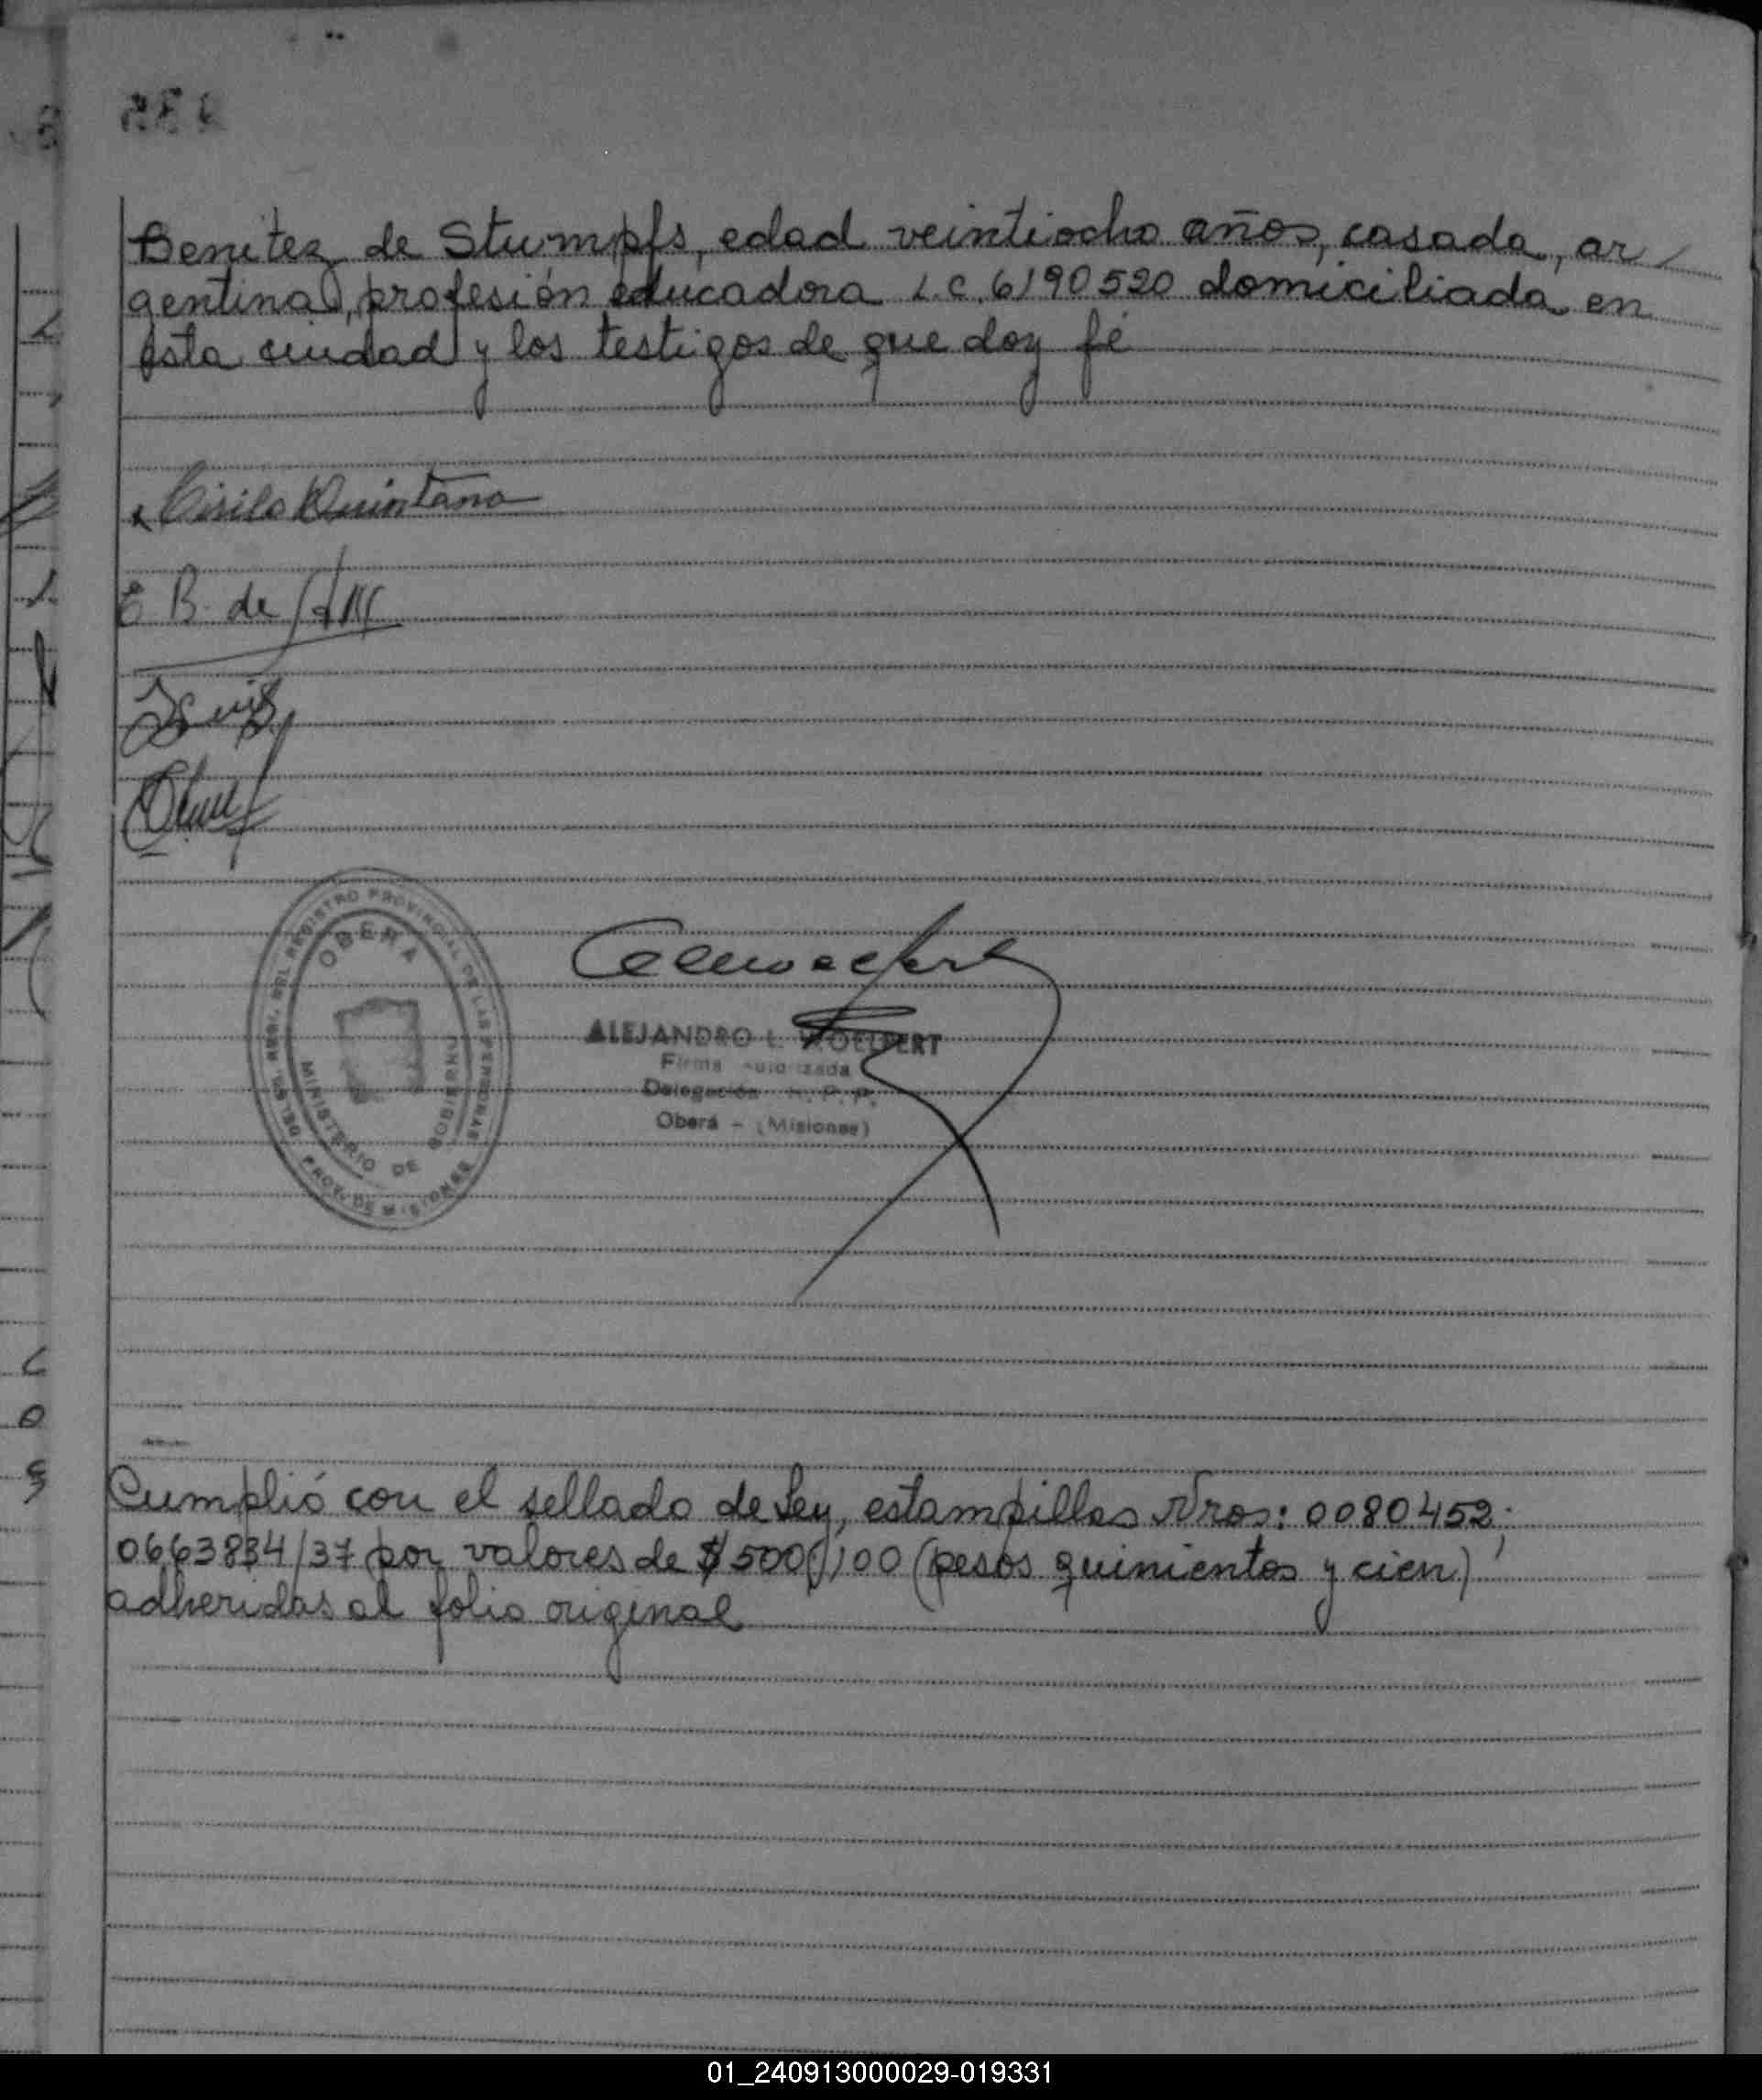 Benitez de Stumpfs, edad veintiocho años, casada, ar
gentina, profesión educadora L.C. 6190520 domiciliada en
esta ciudad y los testigos de que doy fé
Cirilo Quintana
E B. de
REGISTRO PROVINCIAL DE LAS PERSONAS
OBERA
MINISTERIO DE GOBIERNO
PROV. DE MISIONES
ALEJANDRO L. WOELFERT
Firma Autorizada
Delegación R.P.P.
Oberá - (Misiones)
Cumplió con el sellado de Ley, estampillas Nros: 0080452;
0663834/37 por valores de $ 500 y 100 (pesos quinientos y cien)
adheridas al folio original
01_240913000029-019331